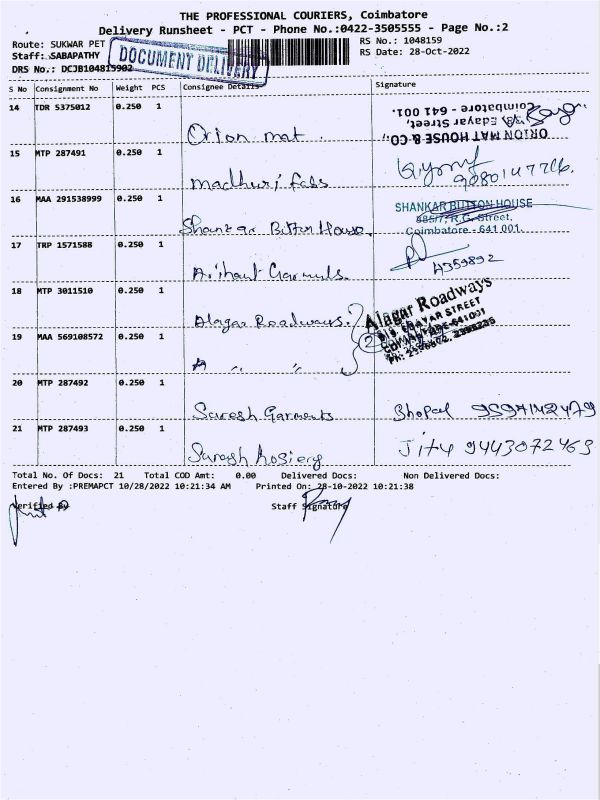 THE PROFESSIONAL COURIERS, Coimbatore
Delivery Runsheet - PCT - Phone No.:0422-3505555 - Page No.:2
Route: SUKWAR PET
RS No.: 1048159
Staff: SABAPATHY
DOCUMENT DELIVERY
RS Date: 28-Oct-2022
DRS No.: DCJB104815902
S No Consignment No Weight PCS Consignee Details Signature
14 TDR 5375012 0.250 1
Orion mat.
ORION MAT HOUSE & CO.,
Edayar Street,
Coimbatore - 641 001.
15 MTP 287491 0.250 1
Madhuri fabs
16 MAA 291538999 0.250 1
Shankar Button House.
SHANKAR BUTTON HOUSE
885/7, R.G. Street,
Coimbatore - 641 001.
17 TRP 1571588 0.250 1
Arihant Garments.
4359892
18 MTP 3011510 0.250 1
Alagar Roadways.
2
Alagar Roadways
EDAYAR STREET
COIMBATORE-641001
19 MAA 569108572 0.250 1
" "
20 MTP 287492 0.250 1
Suresh Garments Bhopal
21 MTP 287493 0.250 1
Suresh Hosiery Jitu 9443072463
Total No. Of Docs: 21 Total COD Amt: 0.00 Delivered Docs: Non Delivered Docs:
Entered By :PREMAPCT 10/28/2022 10:21:34 AM Printed On: 28-10-2022 10:21:38
Verified By Staff Signature